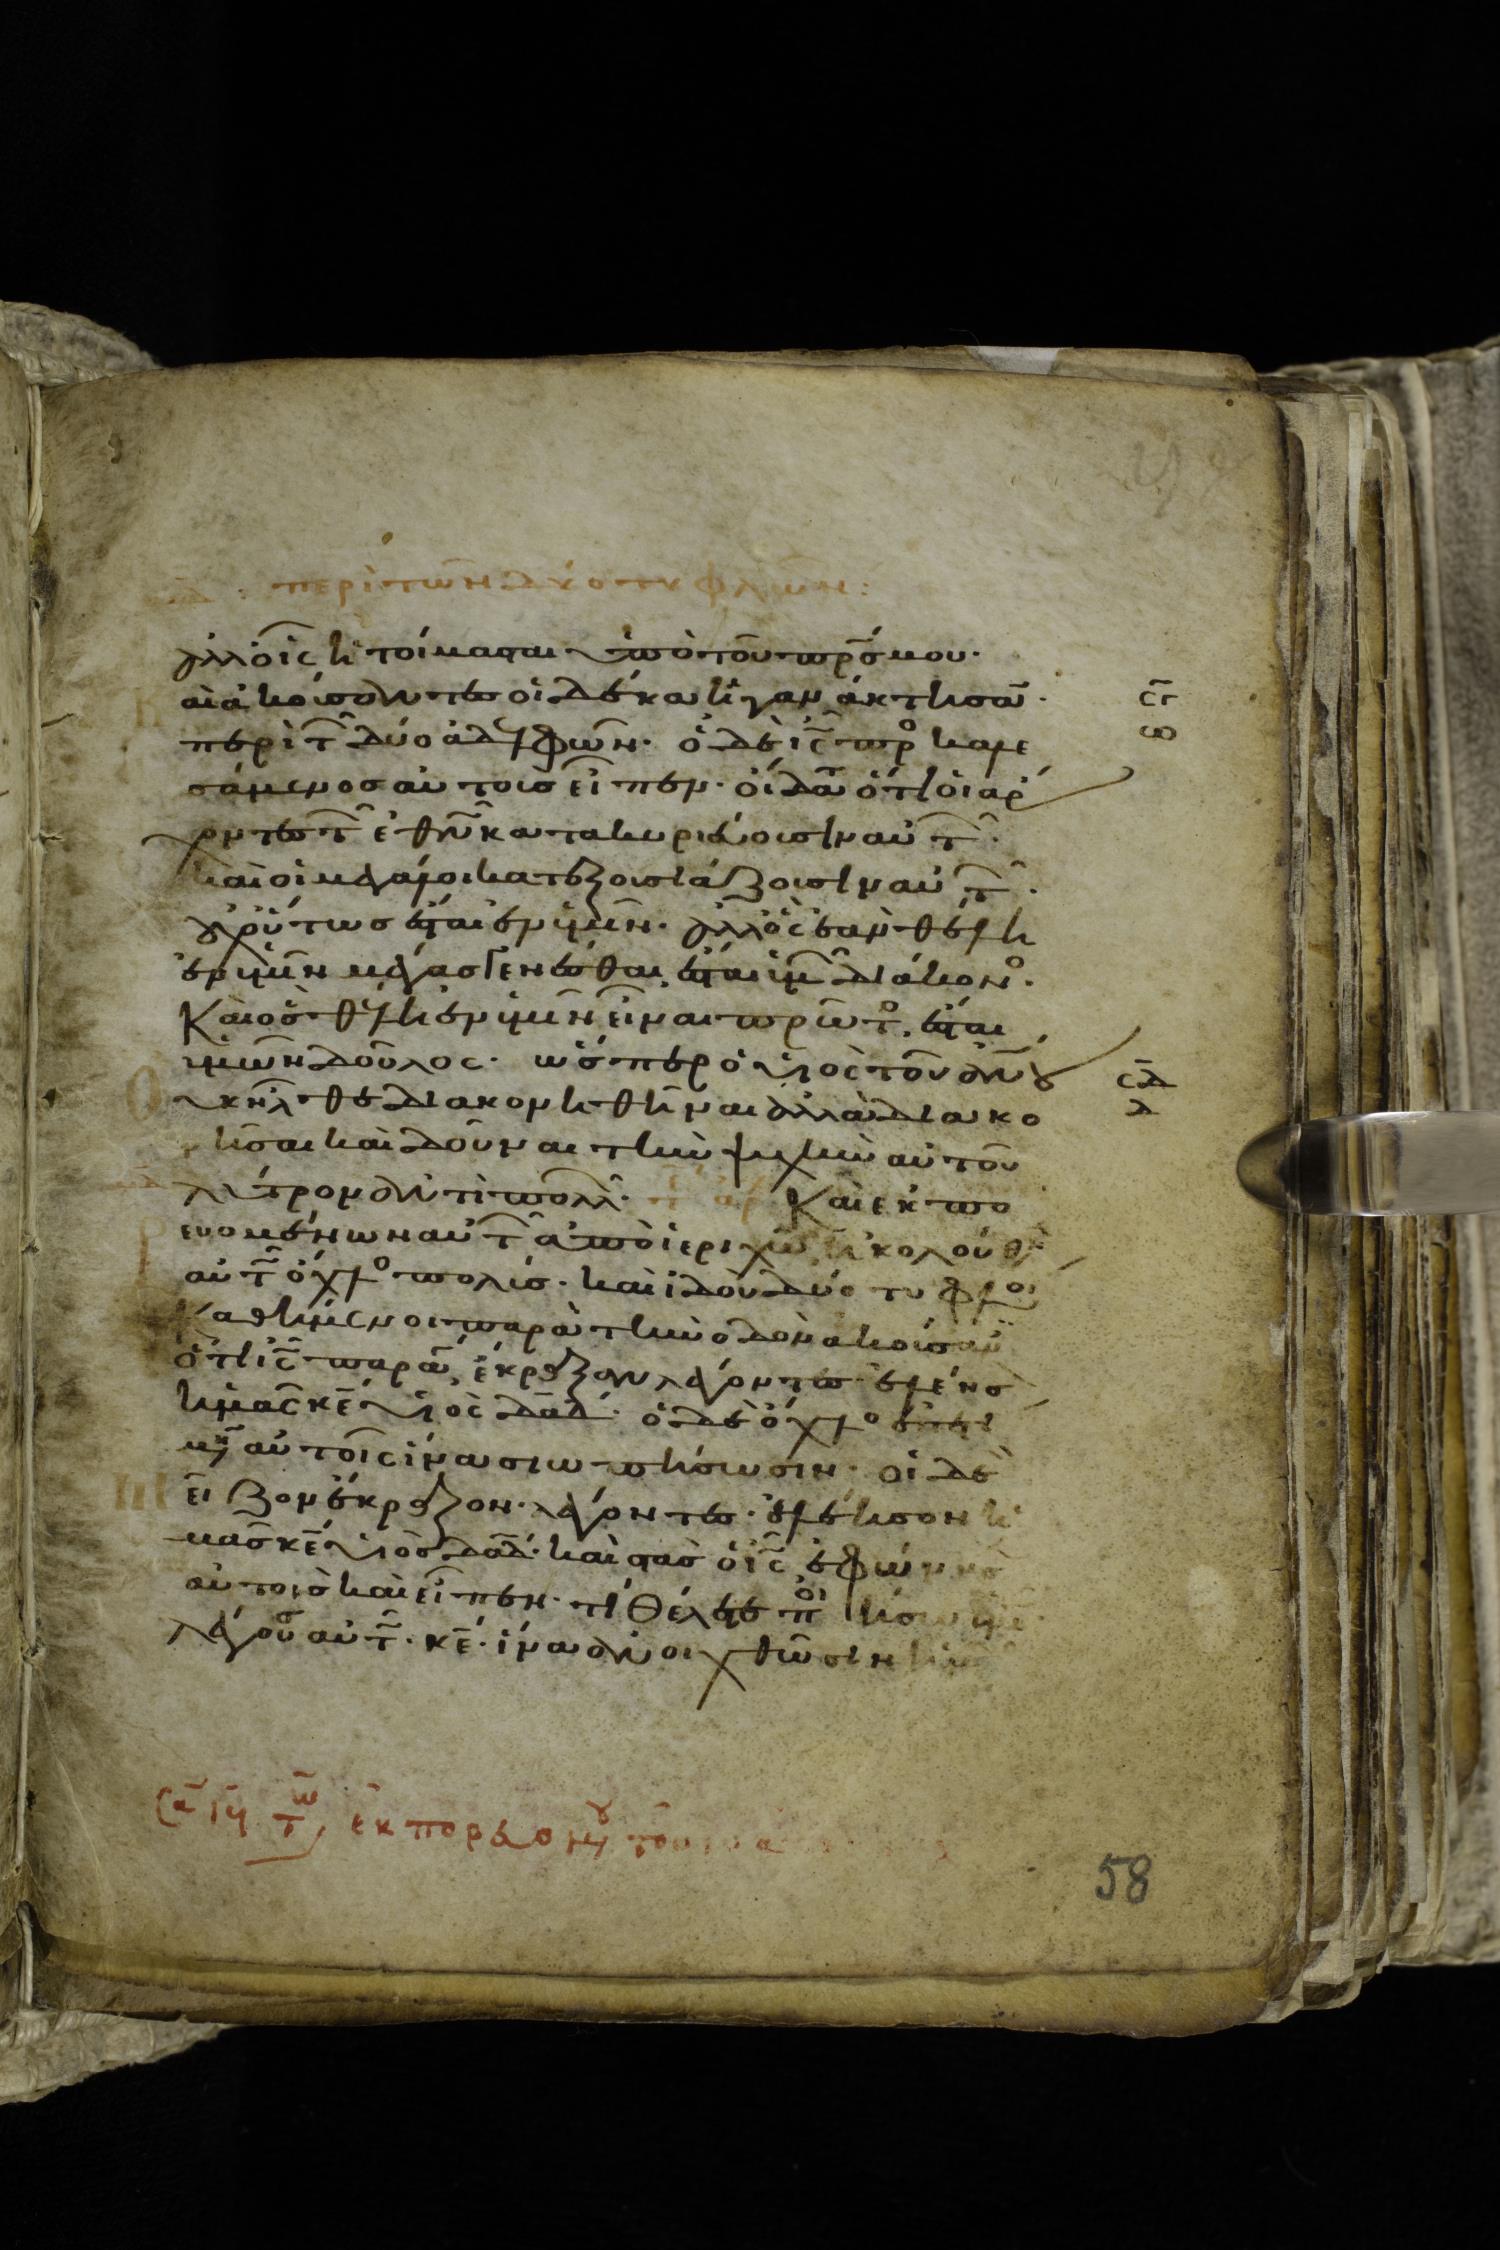 περὶ τῶν δύο τυφλῶν:
ἀλλ οἷς ἡτοίμασται ὑπὸ τοῦ πρς μου·
αἰ ἀκούσαντες οἱ δέκα ἠγανάκτησα̅·
περὶ τ̅ δύο ἀδελφῶν· ὁ δὲ ις̅ προ καλε
σάμενος αὐτοῖς εἶπεν· οἴδατ̅ ὅτι οἱ ἄρ
χοντες τ̅ ἐθν̅ κατακυριεύουσιν αὐτ̅·
καὶ οἱ μεγάλοι κατεξουσιάζουσιν αὐτ̅·
οὐχ οὕτως ἔσται ἐν ὑμῖν· ἀλλ ὃς ἐὰν θέλη
ἐν ὑμῖν μέγας γενέσθαι, ἔσται ὑμ̅ διάκονο·
Καὶ ὃς θέλη ἐν ὑμῖν εἶναι πρῶτο, ἔσται
ὑμῶν δοῦλος· ὥσπερ ὁ υἱὸς τοῦ ἀν̅ου
οὐκ ἦλθε διακονηθῆναι ἀλλὰ διακο
νῆσαι καὶ δοῦναι τὴν ψυχὴν αὐτοῦ
λύτρον ἀντὶ πολλ̅· Καὶ ἐκπο
ευομένων αὐτ̅ ἀπὸ ἱεριχὼ ἠκολούθη
αὐτ̅ ὄχλο πολύς· καὶ ἰδοὺ δύο τυφλοὶ
Καθήμενοι παρὰ τὴν ὁδὸν ἀκούσαν
ὅτι ις̅ παρά, ἔκραξαν λέγοντες· ἐλέησ
ἡμᾶς κε̅ υἱὸς δαδ̅· ὁ δὲ ὄχλο ἐπετι
μ αὐτοῖς ἵνα σιωπήσωσιν· οἱ δὲ
εῖζον ἔκραζον· λέγοντες· ἐλέησον ἡ
μᾶς κε̅ υἱὸς δαδ̅· καὶ στὰς ὁ ις̅ ἐφώνησ
αὐτοὺς καὶ εἶπεν· τί θέλετε ποι ήσω ὑμ̅
λέγου αὐτ̅· κε̅· ἵνα ἀνοιχθῶσιν ἡμ
ἐκπορευομου τοῦ
58